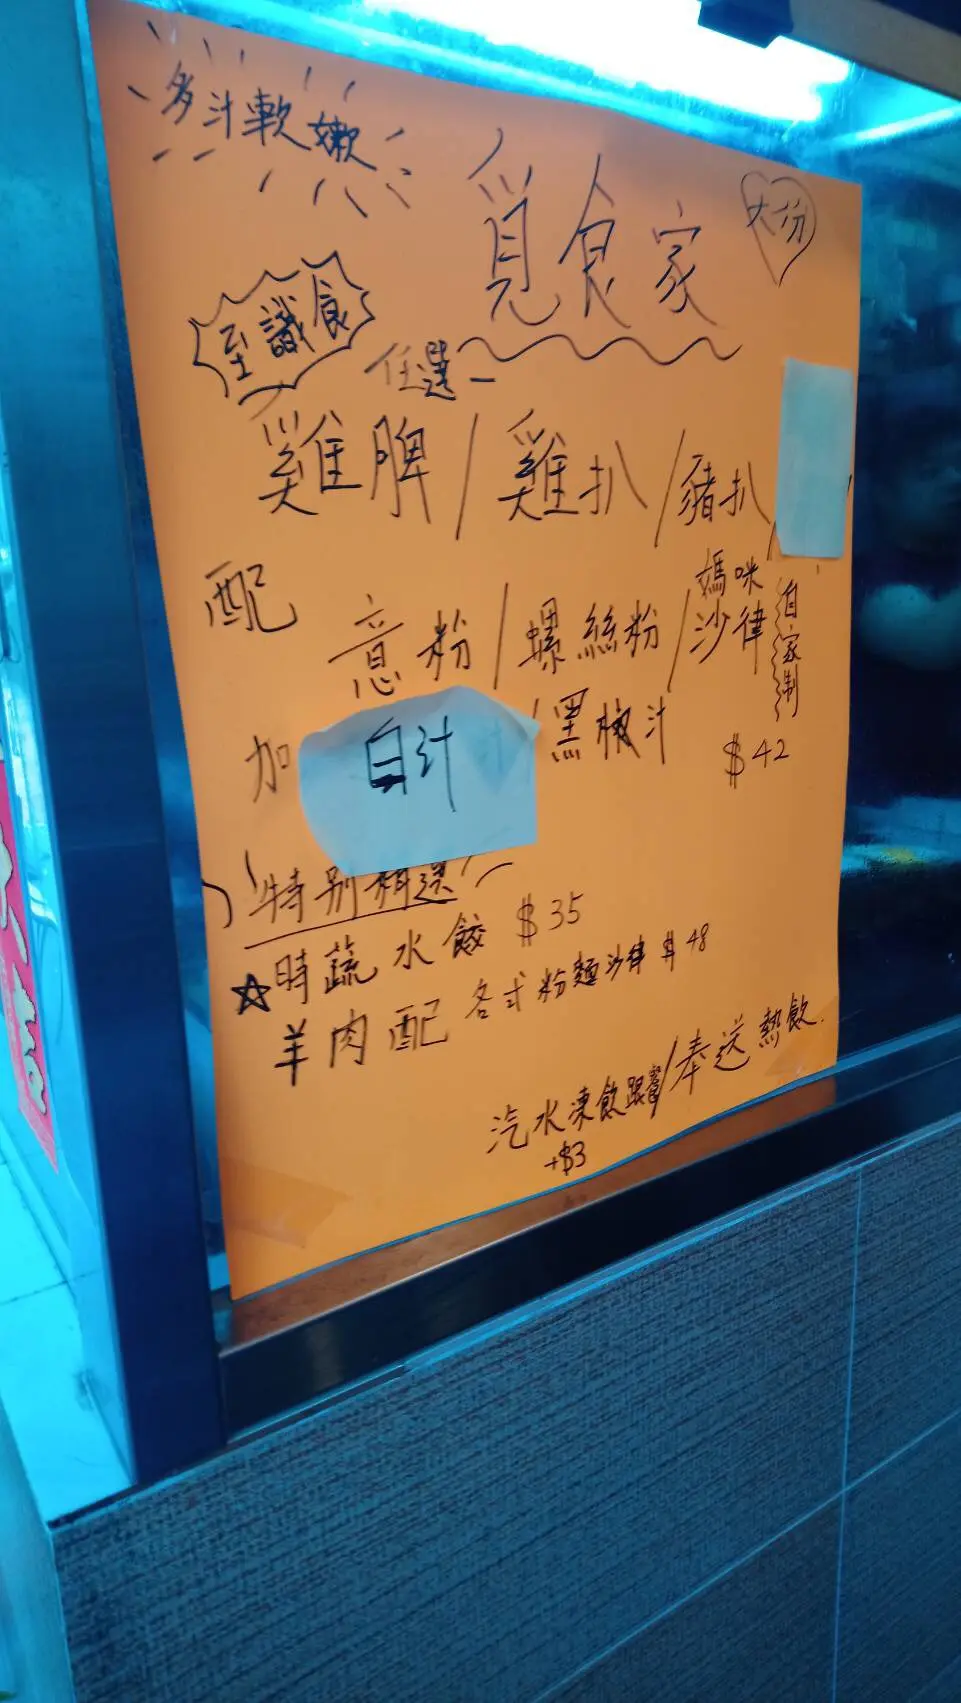 多汁軟嫩
覓食家
大份
至識食
任選一
雞脾/雞扒/豬扒/
配
意粉/螺絲粉/媽咪沙律
自家制
加 白汁/黑椒汁
$42
特別精選
☆時蔬水餃 $35
羊肉配各式粉麵沙律 $48
汽水凍飲跟餐/奉送熱飲.
+$3